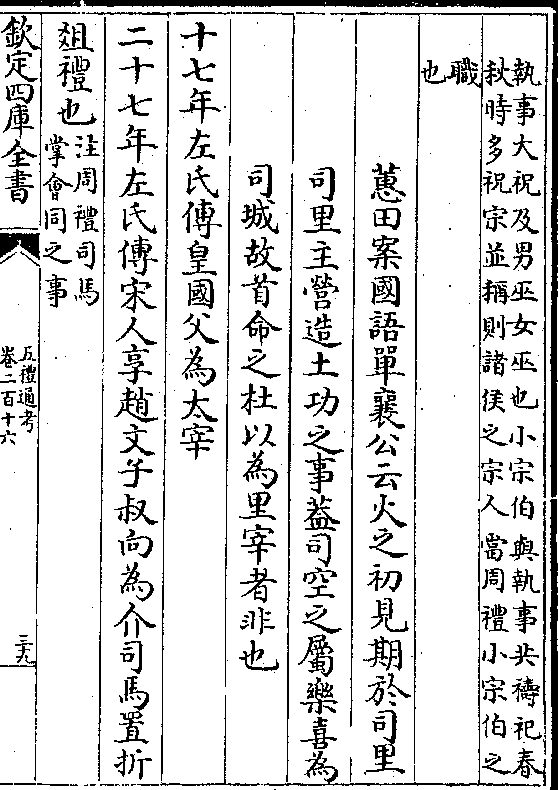 執事大祝及男巫女巫也小宗伯與執事共禱祀春
秋時多祝宗並稱則諸侯之宗人當周禮小宗伯之
職
也
蕙田案國語單襄公云火之初見期於司里
司里主營造土功之事葢司空之屬樂喜為
司城故首命之杜以為里宰者非也
十七年左氏傳皇國父為太宰
二十七年左氏傳宋人享趙文子叔向為介司馬置折
俎禮也
注周禮司馬
掌會同之事
欽定四庫全書
五禮通考
卷二百十六
三九